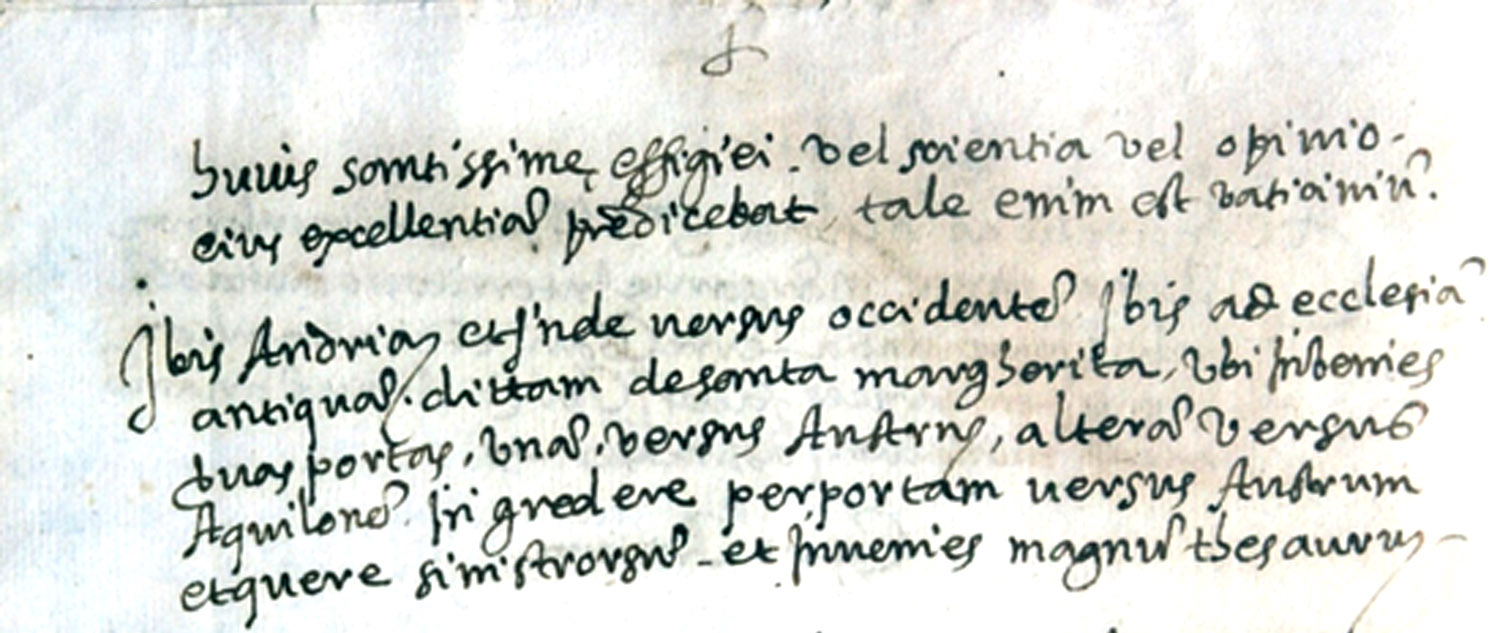 huius sanctissimę effigiei. vel scientia vel opinio-
eius excellentiā predicebat, tale enim est vaticiniū.
Ibis Andriaȝ et inde versus occidentē Ibis ad ecclesiā
antiquā. dittam de santa margherita, vbi Invenies
duas portas, vnā. versus Austrū, alterā versus
Aquilonē. Ingredere per portam uersus Austrum
et quere sinistrorsū - et Inuenies magnū thesaurū -